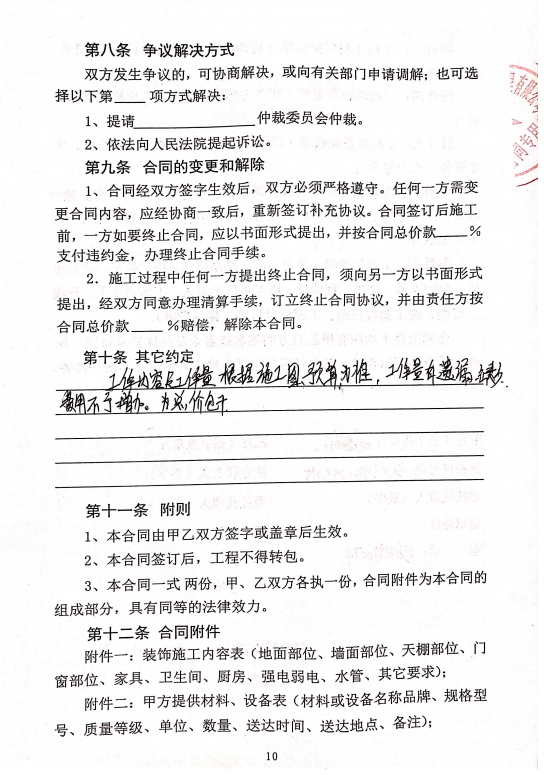 第八条 争议解决方式
双方发生争议的，可协商解决，或向有关部门申请调解；也可选
择以下第____项方式解决：
1、提请______________仲裁委员会仲裁。
2、依法向人民法院提起诉讼。
第九条 合同的变更和解除
1、合同经双方签字生效后，双方必须严格遵守。任何一方需变
更合同内容，应经协商一致后，重新签订补充协议。合同签订后施工
前，一方如要终止合同，应以书面形式提出，并按合同总价款____%
支付违约金，办理终止合同手续。
2．施工过程中任何一方提出终止合同，须向另一方以书面形式
提出，经双方同意办理清算手续，订立终止合同协议，并由责任方按
合同总价款____%赔偿，解除本合同。
第十条 其它约定
工作内容及工作量 根据施工图、预算为准，工作量有遗漏
费用不予增加。为总价包干
第十一条 附则
1、本合同由甲乙双方签字或盖章后生效。
2、本合同签订后，工程不得转包。
3、本合同一式 两份，甲、乙双方各执一份，合同附件为本合同的
组成部分，具有同等的法律效力。
第十二条 合同附件
附件一：装饰施工内容表（地面部位、墙面部位、天棚部位、门
窗部位、家具、卫生间、厨房、强电弱电、水管、其它要求）；
附件二：甲方提供材料、设备表（材料或设备名称品牌、规格型
号、质量等级、单位、数量、送达时间、送达地点、备注）；
10